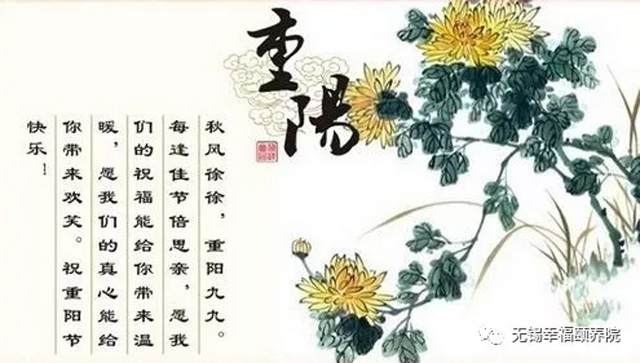 重陽
秋风徐徐，重阳九九。
每逢佳节倍思亲，愿我
们的祝福能给你带来温
暖，愿我们的真心能给
你带来欢笑。祝重阳节
快乐！
无锡幸福颐养院